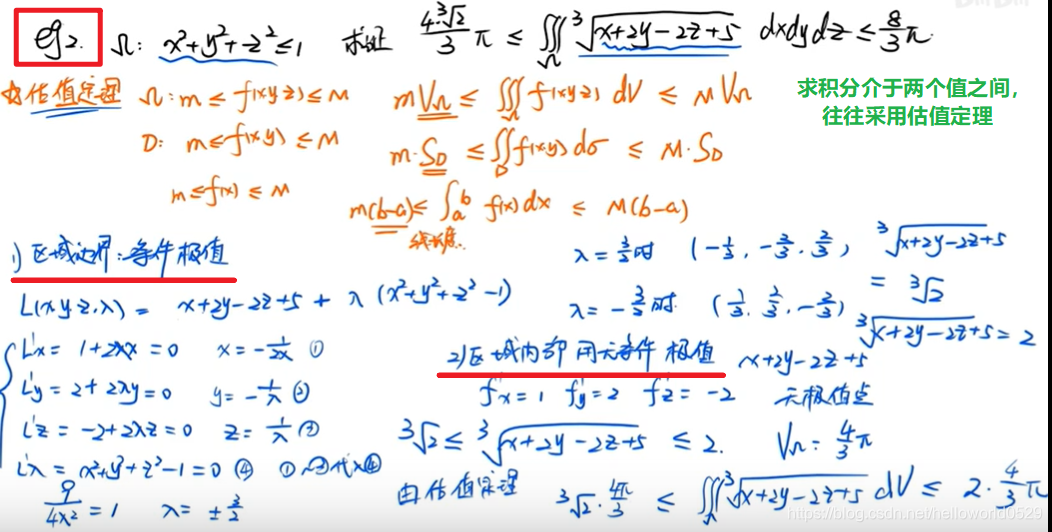 eg2. Ω: x²+y²+z²≤1 求证 4·∛2/3 π ≤ ∭_Ω ∛(x+2y-2z+5) dxdydz ≤ 8/3 π.
估值定理 Ω: m ≤ f(xyz) ≤ M mV_Ω ≤ ∭_Ω f(xyz) dV ≤ M V_Ω
求积分介于两个值之间,
往往采用估值定理
D: m ≤ f(xy) ≤ M m·S_D ≤ ∬_D f(xy) dσ ≤ M·S_D
m ≤ f(x) ≤ M m(b-a) ≤ ∫_a^b f(x) dx ≤ M(b-a)
线长度.
1) 区域边界: 条件极值
L(x y z.λ) = x+2y-2z+5 + λ (x²+y²+z²-1)
L'x = 1+2λx = 0 x = -1/2λ ①
L'y = 2+2λy = 0 y = -1/λ ②
L'z = -2+2λz = 0 z = 1/λ ③
L'λ = x²+y²+z²-1 = 0 ④ ①~③代入④
9/4λ² = 1 λ = ±3/2
λ = 3/2时 (-1/3, -2/3, 2/3) ∛(x+2y-2z+5)
= ∛2
λ = -3/2时. (1/3, 2/3, -2/3) ∛(x+2y-2z+5) = 2
2) 区域内部 用无条件 极值 x+2y-2z+5
f'x = 1 f'y = 2 f'z = -2 无极值点
∛2 ≤ ∛(x+2y-2z+5) ≤ 2. V_Ω = 4/3 π
由估值定理 ∛2·4π/3 ≤ ∭_Ω ∛(x+2y-2z+5) dV ≤ 2·4/3 π
https://blog.csdn.net/helloworld0529